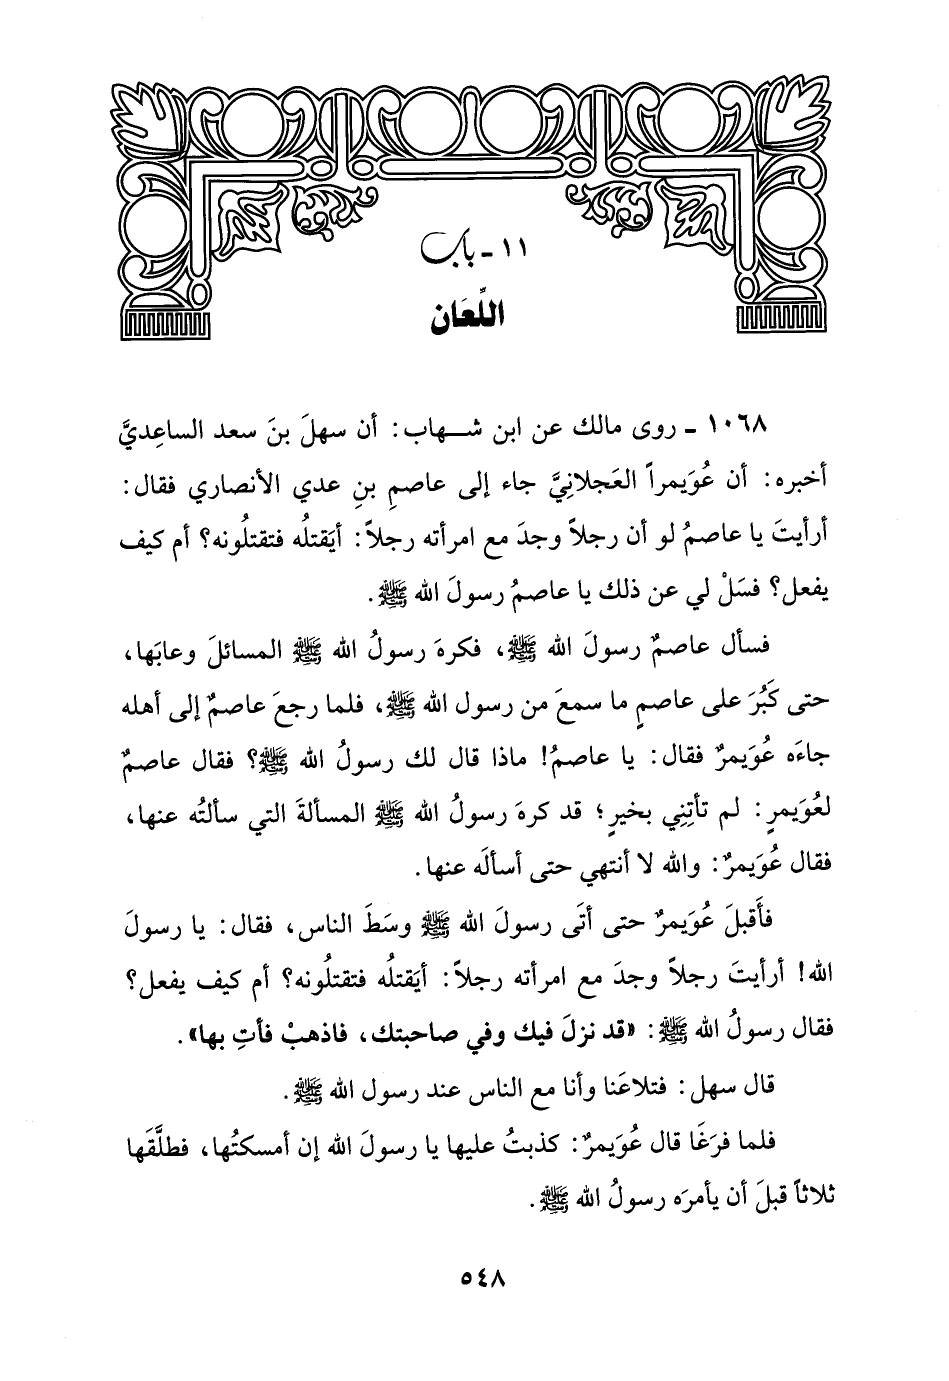 ١١ - باب
اللِّعَان
١٠٦٨ - روى مالك عن ابن شهاب: أن سهلَ بنَ سعد الساعِديَّ
أخبره: أن عُوَيمراً العَجلانِيَّ جاء إلى عاصمِ بنِ عدي الأنصاري فقال:
أرأيتَ يا عاصمُ لو أن رجلاً وجدَ مع امرأته رجلاً: أيَقتلُه فتقتلُونه؟ أم كيف
يفعل؟ فسَلْ لي عن ذلك يا عاصمُ رسولَ الله ﷺ.
فسأل عاصمٌ رسولَ الله ﷺ، فكرهَ رسولُ الله ﷺ المسائلَ وعابَها،
حتى كَبُرَ على عاصمٍ ما سمعَ من رسول الله ﷺ، فلما رجعَ عاصمٌ إلى أهله
جاءَه عُوَيمرٌ فقال: يا عاصمُ! ماذا قال لك رسولُ الله ﷺ؟ فقال عاصمٌ
لعُوَيمرٍ: لم تأتِنِي بخيرٍ؛ قد كرهَ رسولُ الله ﷺ المسألةَ التي سألتُه عنها،
فقال عُوَيمرٌ: والله لا أنتهي حتى أسألَه عنها.
فأَقبلَ عُوَيمرٌ حتى أتَى رسولَ الله ﷺ وسَطَ الناس، فقال: يا رسولَ
الله! أرأيتَ رجلاً وجدَ مع امرأته رجلاً: أيَقتلُه فتقتلُونه؟ أم كيف يفعل؟
فقال رسولُ الله ﷺ: «قد نزلَ فيك وفي صاحبتك، فاذهبْ فأتِ بها».
قال سهل: فتلاعَنا وأنا مع الناس عند رسول الله ﷺ.
فلما فرَغَا قال عُوَيمرٌ: كذبتُ عليها يا رسولَ الله إن أمسكتُها، فطلَّقَها
ثلاثاً قبلَ أن يأمرَه رسولُ الله ﷺ.
٥٤٨